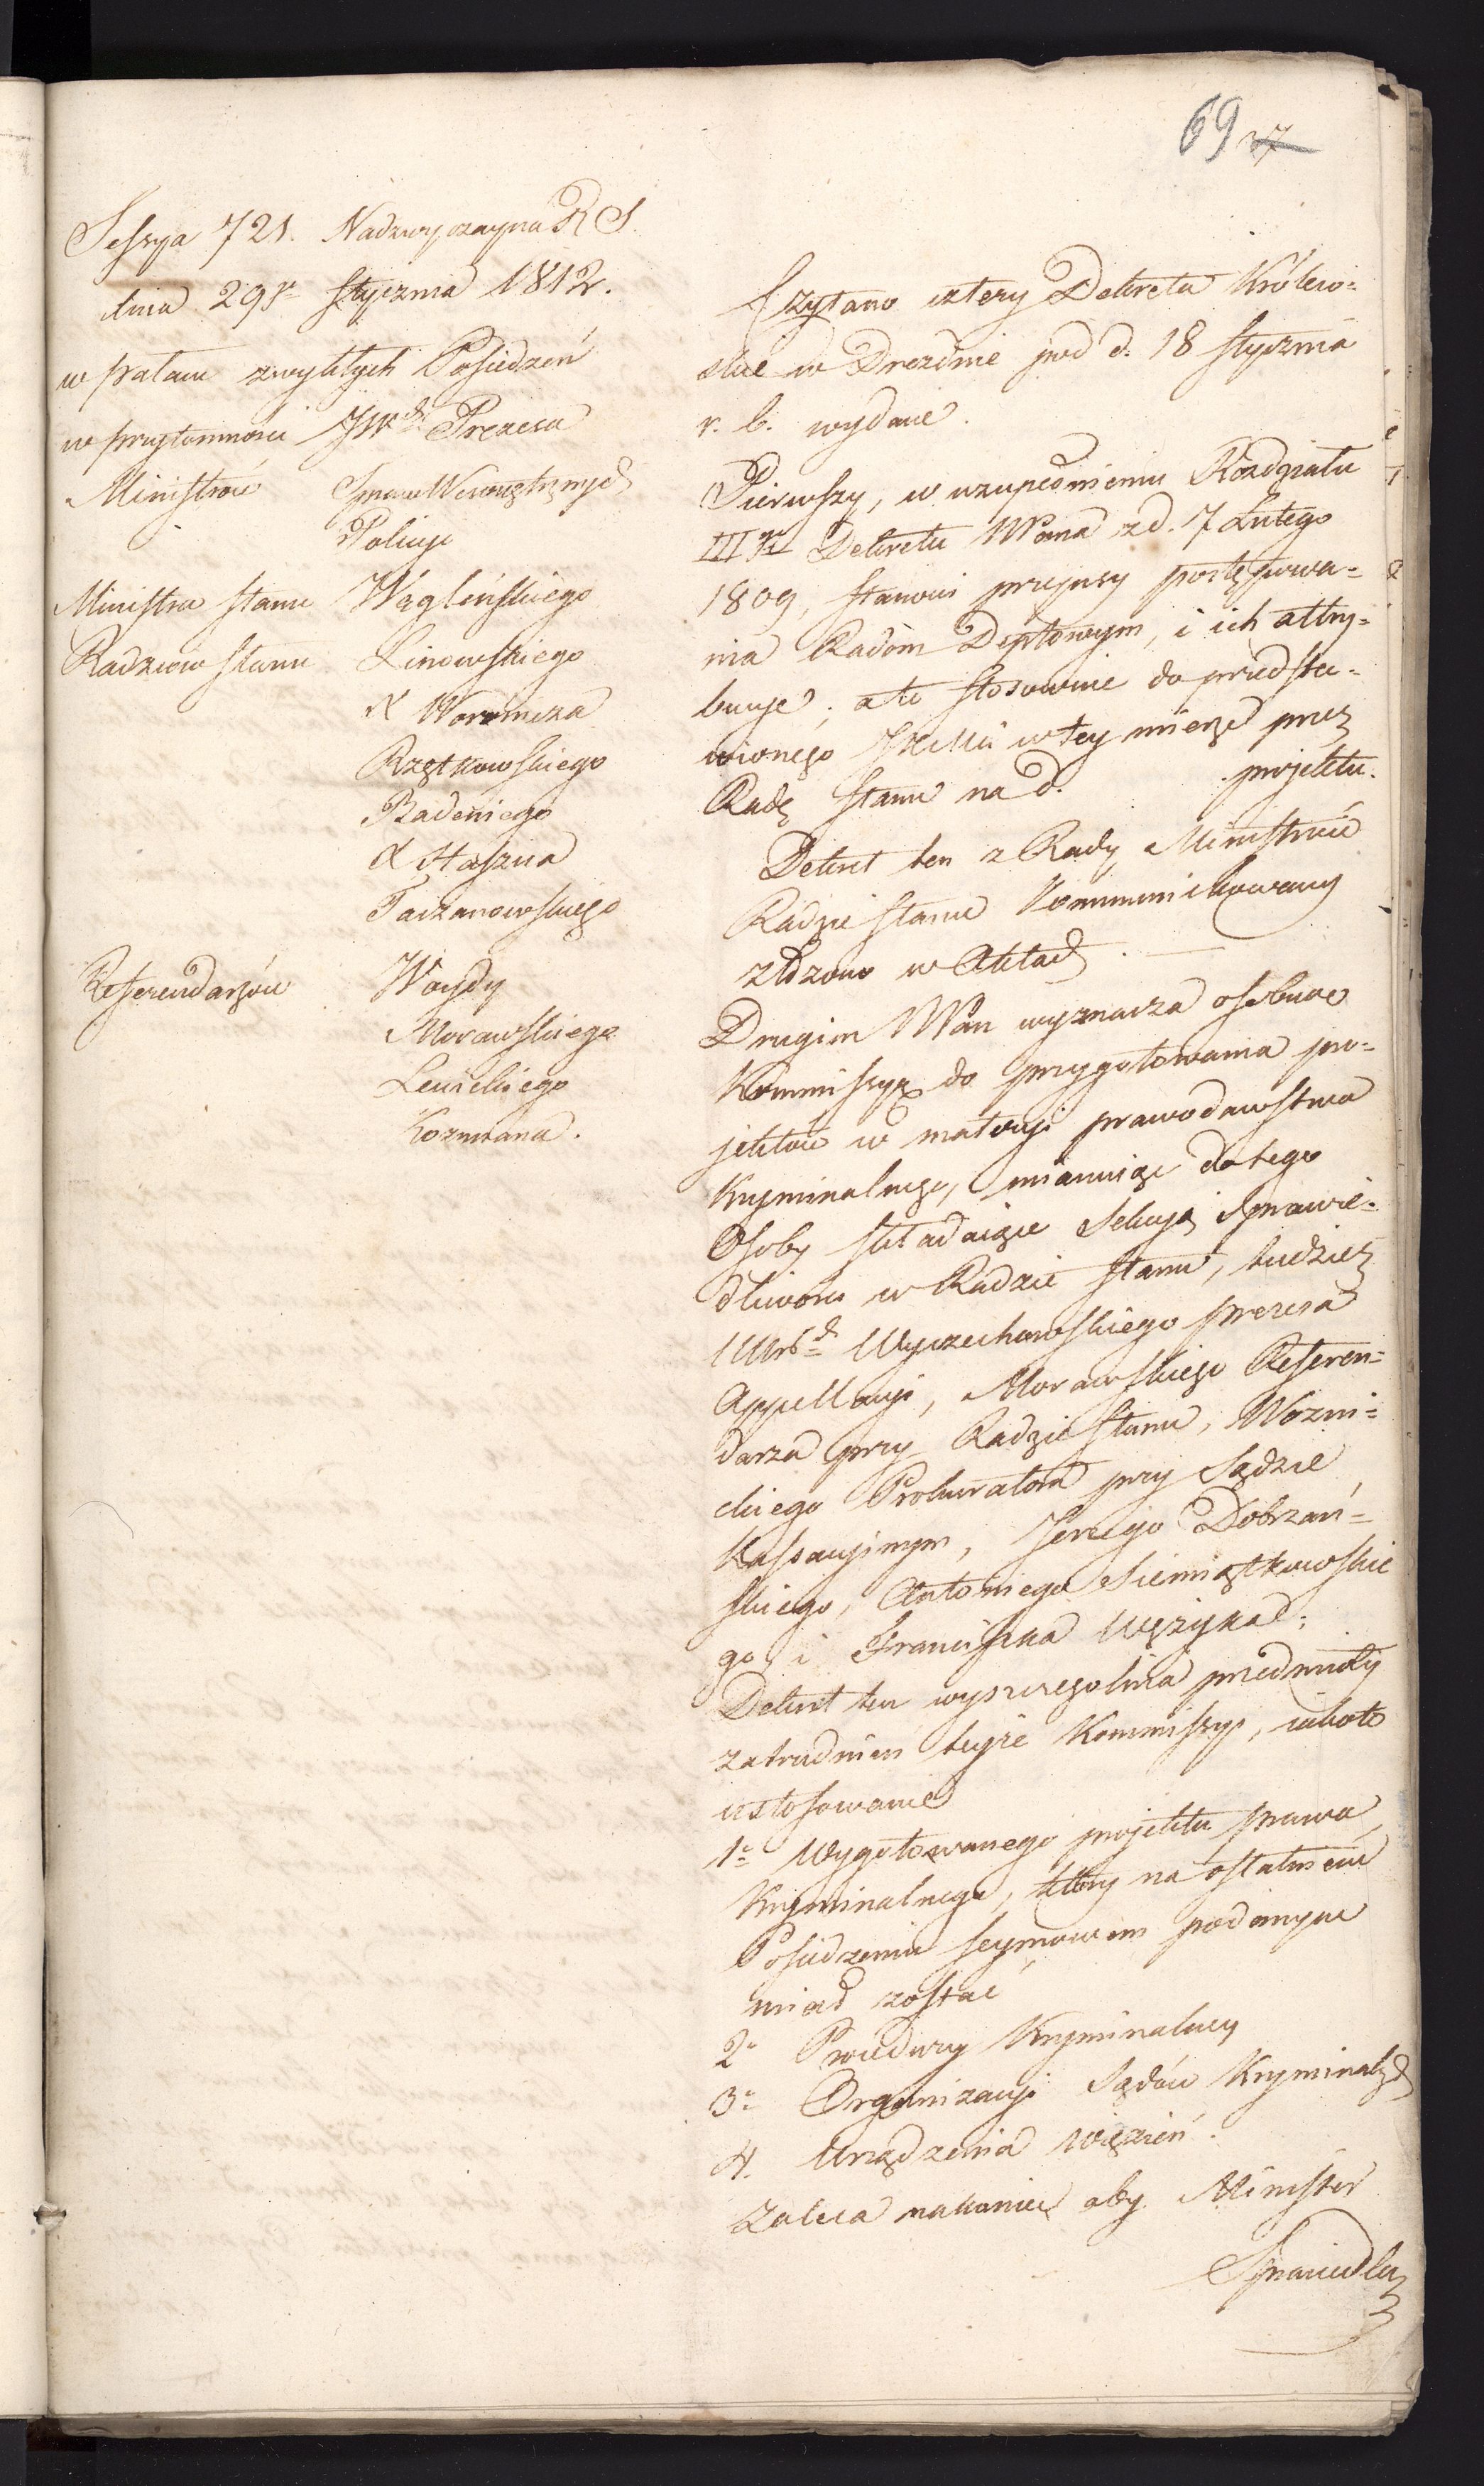 69 37
Sessya 721. Nadzwyczayna R S.
dnia 29go Stycznia 1812.
w pałacu zwykłych Posiedzeń
w przytomności JW. Prezesa
Ministrów Spraw Wewnętrznych
Policyi
Ministra Stanu Węglińskiego
Radzców Stanu Linowskiego
X Woronicza
Rzętkowskiego
Badeniego
X Staszica
Taczanowskiego
Referendarzów Woydy
Morawskiego
Lewickiego
Kozmiana.
Czytano cztery Dekreta Królew=
skie w Drezdnie pod d. 18 Stycznia
r. b. wydane.
Pierwszy, w uzupełnieniu Rozdziału
IIIgo Dekretu WPana z d. 7 Lutego
1809, stanowi przepisy postępowa=
nia Radom Deptowym, i ich attry=
bucye; a to stosownie do przedsta=
wionego JKMci w tey mierze przez
Radę Stanu na d. projektu.
Dekret ten z Rady Ministrów
Radzie Stanu kommunikowany
złożono w Aktach.
Drugim WPan wyznacza osobną
Kommissyą do przygotowania pro=
jektów w materyi prawodawstwa
Kryminalnego, mianuiąc do tego
Osoby składaiące Sekcyą Sprawie=
dliwości w Radzie Stanu, tudzież
Wyczechowskiego Prezesa
Appellacyi, Morawskiego Referen=
darza przy Radzie Stanu, Wozni=
ckiego Prokuratora przy Sądzie
Kassacyinym, Jerzego Dobrzań=
skiego, Antoniego Siemiątkowskie
go i Franciszka Wężyka;
Dekret ten wyszczególnia przedmioty
zatrudnień teyże Kommissyi, iakoto
ustosowanie
1o Wygotowanego projektu prawa
Kryminalnego, który na ostatniem
Posiedzeniu Seymowem podanym
miał zostać
2o Procedury Kryminalney
3o Organizacyi Sądów Kryminalnych
4. Urządzenia więzień.
Zaleca nakoniec aby Minister
Sprawiedlu